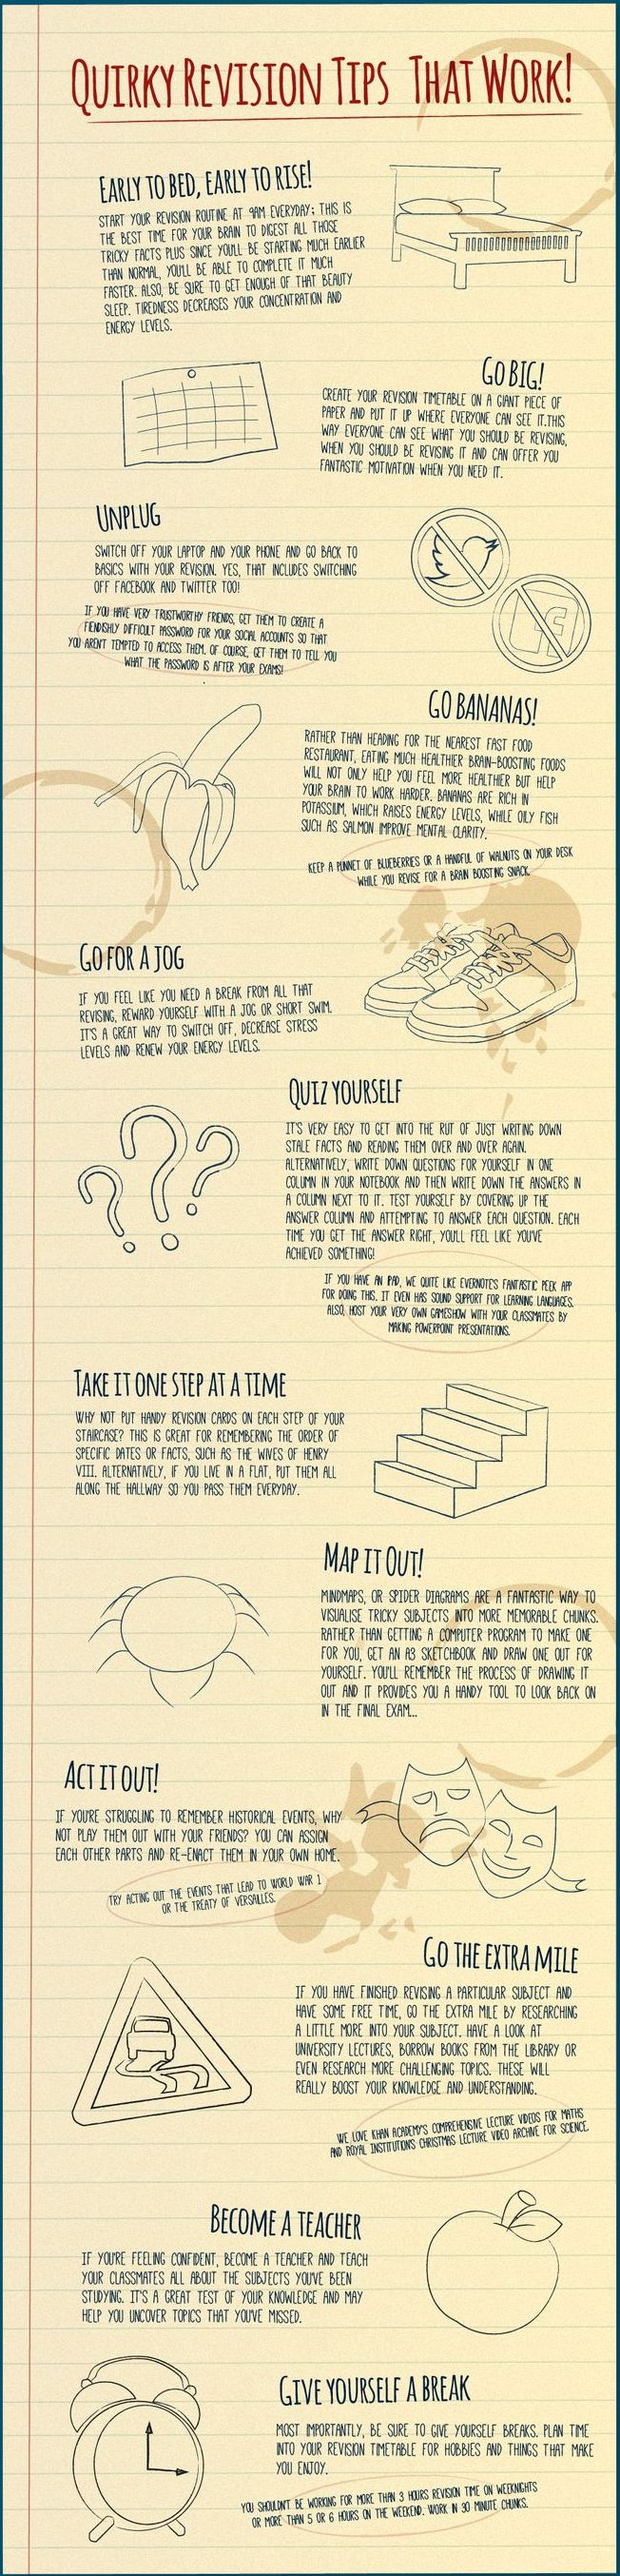 QUIRKY REVISION TIPS THAT WORK!
EARLY TO BED, EARLY TO RISE!
START YOUR REVISION ROUTINE AT 9AM EVERYDAY; THIS IS
THE BEST TIME FOR YOUR BRAIN TO DIGEST ALL THOSE
TRICKY FACTS PLUS SINCE YOU'LL BE STARTING MUCH EARLIER
THAN NORMAL, YOU'LL BE ABLE TO COMPLETE IT MUCH
FASTER. ALSO, BE SURE TO GET ENOUGH OF THAT BEAUTY
SLEEP. TIREDNESS DECREASES YOUR CONCENTRATION AND
ENERGY LEVELS.
GO BIG!
CREATE YOUR REVISION TIMETABLE ON A GIANT PIECE OF
PAPER AND PUT IT UP WHERE EVERYONE CAN SEE IT.THIS
WAY EVERYONE CAN SEE WHAT YOU SHOULD BE REVISING,
WHEN YOU SHOULD BE REVISING IT AND CAN OFFER YOU
FANTASTIC MOTIVATION WHEN YOU NEED IT.
UNPLUG
SWITCH OFF YOUR LAPTOP AND YOUR PHONE AND GO BACK TO
BASICS WITH YOUR REVISION. YES, THAT INCLUDES SWITCHING
OFF FACEBOOK AND TWITTER TOO!
IF YOU HAVE VERY TRUSTWORTHY FRIENDS, GET THEM TO CREATE A
FIENDISHLY DIFFICULT PASSWORD FOR YOUR SOCIAL ACCOUNTS SO THAT
YOU AREN'T TEMPTED TO ACCESS THEM. OF COURSE, GET THEM TO TELL YOU
WHAT THE PASSWORD IS AFTER YOUR EXAMS!
GO BANANAS!
RATHER THAN HEADING FOR THE NEAREST FAST FOOD
RESTAURANT, EATING MUCH HEALTHIER BRAIN-BOOSTING FOODS
WILL NOT ONLY HELP YOU FEEL MORE HEALTHIER BUT HELP
YOUR BRAIN TO WORK HARDER. BANANAS ARE RICH IN
POTASSIUM, WHICH RAISES ENERGY LEVELS, WHILE OILY FISH
SUCH AS SALMON IMPROVE MENTAL CLARITY.
KEEP A PUNNET OF BLUEBERRIES OR A HANDFUL OF WALNUTS ON YOUR DESK
WHILE YOU REVISE FOR A BRAIN BOOSTING SNACK.
GO FOR A JOG
IF YOU FEEL LIKE YOU NEED A BREAK FROM ALL THAT
REVISING, REWARD YOURSELF WITH A JOG OR SHORT SWIM.
IT'S A GREAT WAY TO SWITCH OFF, DECREASE STRESS
LEVELS AND RENEW YOUR ENERGY LEVELS.
QUIZ YOURSELF
IT'S VERY EASY TO GET INTO THE RUT OF JUST WRITING DOWN
STALE FACTS AND READING THEM OVER AND OVER AGAIN.
ALTERNATIVELY, WRITE DOWN QUESTIONS FOR YOURSELF IN ONE
COLUMN IN YOUR NOTEBOOK AND THEN WRITE DOWN THE ANSWERS IN
A COLUMN NEXT TO IT. TEST YOURSELF BY COVERING UP THE
ANSWER COLUMN AND ATTEMPTING TO ANSWER EACH QUESTION. EACH
TIME YOU GET THE ANSWER RIGHT, YOU'LL FEEL LIKE YOU'VE
ACHIEVED SOMETHING!
IF YOU HAVE AN IPAD, WE QUITE LIKE EVERNOTE'S FANTASTIC PEEK APP
FOR DOING THIS. IT EVEN HAS SOUND SUPPORT FOR LEARNING LANGUAGES.
ALSO, HOST YOUR VERY OWN GAMESHOW WITH YOUR CLASSMATES BY
MAKING POWERPOINT PRESENTATIONS.
TAKE IT ONE STEP AT A TIME
WHY NOT PUT HANDY REVISION CARDS ON EACH STEP OF YOUR
STAIRCASE? THIS IS GREAT FOR REMEMBERING THE ORDER OF
SPECIFIC DATES OR FACTS, SUCH AS THE WIVES OF HENRY
VIII. ALTERNATIVELY, IF YOU LIVE IN A FLAT, PUT THEM ALL
ALONG THE HALLWAY SO YOU PASS THEM EVERYDAY.
MAP IT OUT!
MINDMAPS, OR SPIDER DIAGRAMS ARE A FANTASTIC WAY TO
VISUALISE TRICKY SUBJECTS INTO MORE MEMORABLE CHUNKS.
RATHER THAN GETTING A COMPUTER PROGRAM TO MAKE ONE
FOR YOU, GET AN A3 SKETCHBOOK AND DRAW ONE OUT FOR
YOURSELF. YOU'LL REMEMBER THE PROCESS OF DRAWING IT
OUT AND IT PROVIDES YOU A HANDY TOOL TO LOOK BACK ON
IN THE FINAL EXAM...
ACT IT OUT!
IF YOU'RE STRUGGLING TO REMEMBER HISTORICAL EVENTS, WHY
NOT PLAY THEM OUT WITH YOUR FRIENDS? YOU CAN ASSIGN
EACH OTHER PARTS AND RE-ENACT THEM IN YOUR OWN HOME.
TRY ACTING OUT THE EVENTS THAT LEAD TO WORLD WAR 1
OR THE TREATY OF VERSALLES.
GO THE EXTRA MILE
IF YOU HAVE FINISHED REVISING A PARTICULAR SUBJECT AND
HAVE SOME FREE TIME, GO THE EXTRA MILE BY RESEARCHING
A LITTLE MORE INTO YOUR SUBJECT. HAVE A LOOK AT
UNIVERSITY LECTURES, BORROW BOOKS FROM THE LIBRARY OR
EVEN RESEARCH MORE CHALLENGING TOPICS. THESE WILL
REALLY BOOST YOUR KNOWLEDGE AND UNDERSTANDING.
WE LOVE KHAN ACADEMY'S COMPREHENSIVE LECTURE VIDEOS FOR MATHS
AND ROYAL INSTITUTION'S CHRISTMAS LECTURE VIDEO ARCHIVE FOR SCIENCE.
BECOME A TEACHER
IF YOU'RE FEELING CONFIDENT, BECOME A TEACHER AND TEACH
YOUR CLASSMATES ALL ABOUT THE SUBJECTS YOU'VE BEEN
STUDYING. IT'S A GREAT TEST OF YOUR KNOWLEDGE AND MAY
HELP YOU UNCOVER TOPICS THAT YOU'VE MISSED.
GIVE YOURSELF A BREAK
MOST IMPORTANTLY, BE SURE TO GIVE YOURSELF BREAKS. PLAN TIME
INTO YOUR REVISION TIMETABLE FOR HOBBIES AND THINGS THAT MAKE
YOU ENJOY.
YOU SHOULDN'T BE WORKING FOR MORE THAN 3 HOURS REVISION TIME ON WEEKNIGHTS
OR MORE THAN 5 OR 6 HOURS ON THE WEEKEND. WORK IN 30 MINUTE CHUNKS.